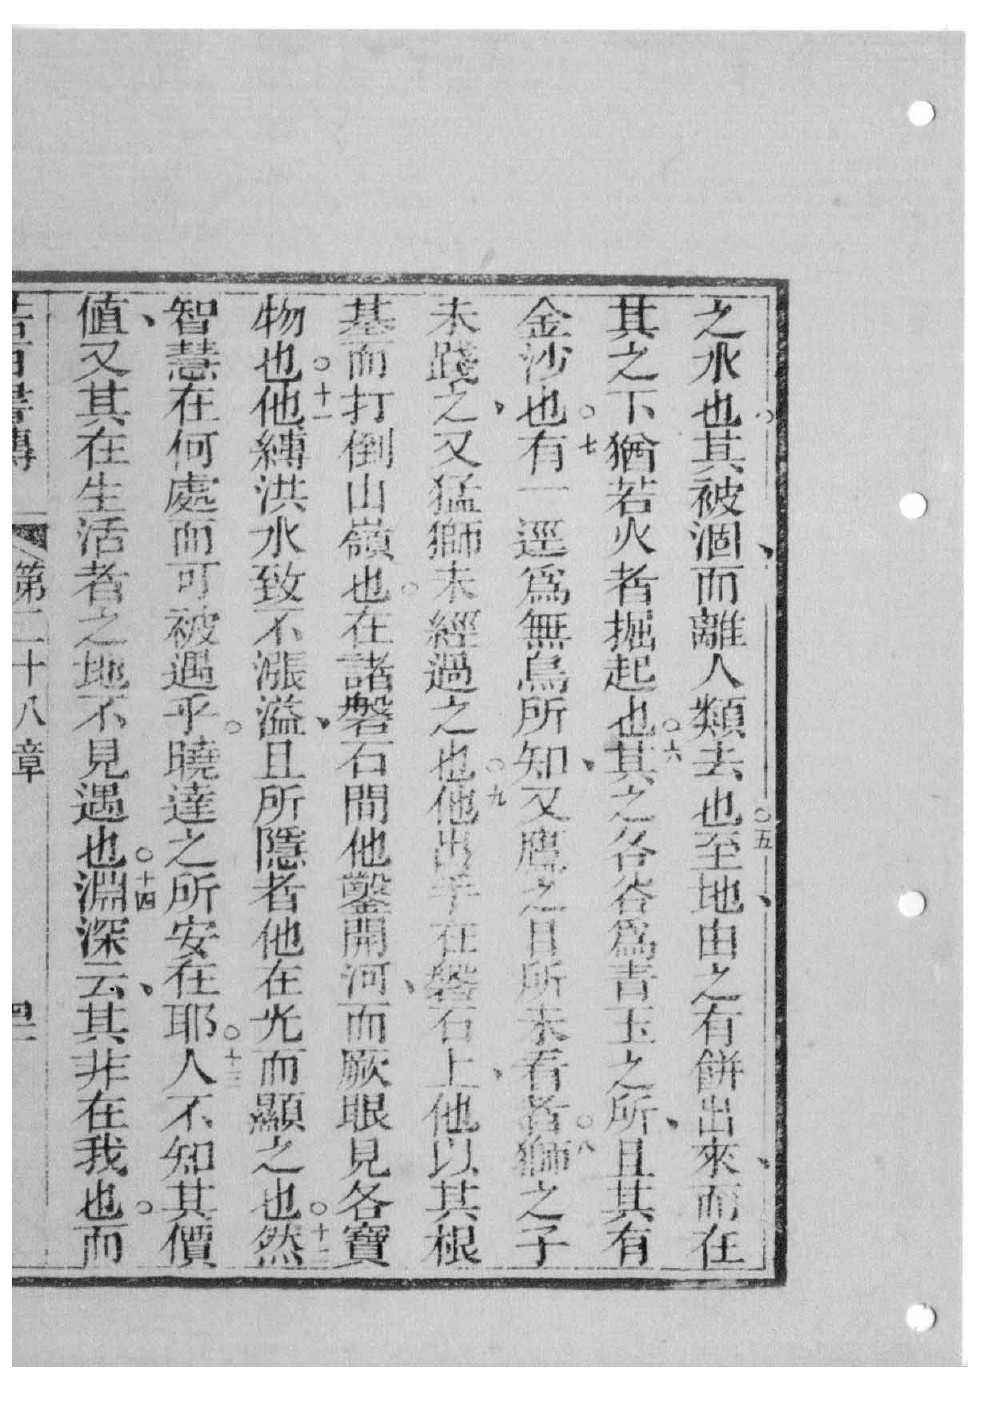 之水也。其被涸、而離人類去也。五至地、由之有餅出來、而在
其之下猶若火者掘起也。六其之各谷爲青玉之所、且其有
金沙也。七有一逕爲無鳥所知、又鷹之目所未看者。八獅之子
未踐之、又猛獅未經過之也。九他出手在磐石上、他以其根
基而打倒山嶺也。在諸磐石間他鑿開河、而厥眼見各寶
物也。十一他縛洪水致不漲溢、且所隱者他在光而顯之也。十二然
智慧在何處而可被遇乎。曉達之所安在耶。十三人不知其價
值、又其在生活者之地不見遇也。十四淵深云、其非在我也。而
若百書傳 第二十八章